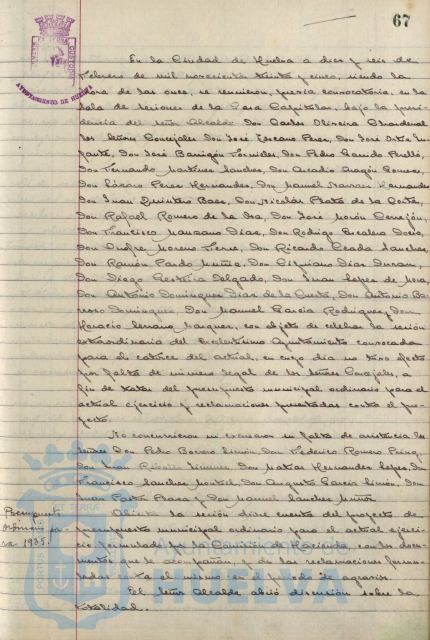 67
AYUNTAMIENTO DE HUELVA
En la Ciudad de Huelva a diez y seis de
Febrero de mil novecientos treinta y cinco, siendo la
hora de las once, se reunieron, previa convocatoria, en la
Sala de Sesiones de la Casa Capitular, bajo la presi-
dencia del señor Alcalde Don Carlos Oliveira Chardenal
los Señores Concejales Don José Lozano Perez, Don José Ortiz In-
fante, Don José Barrigón Fornieles, Don Pedro Garrido Perelló,
Don Fernando Martinez Sanchez, Don Arcadio Aragón Gomez,
Don Lázaro Perez Hernandez, Don Manuel Hernandez
Don Juan Quintero Baez, Don Nicolás Prats de la Corte,
Don Rafael Romero de la Isa, Don José Morón Cerrejón,
Don Francisco Manzano Diaz, Don Rodrigo
Don Onofre Moreno Don Ricardo Sanchez,
Don Ramón Pardo Muñiz, Don Cipriano Diaz Duran,
Don Diego Delgado, Don Juan Lopez de Mora,
Don Antonio Dominguez Diaz de la Don Antonio Ba-
rroso Dominguez, Don Manuel Garcia Rodriguez y Don
Horacio con objeto de celebrar la sesión
extraordinaria del Excelentísimo Ayuntamiento convocada
para el catorce del actual, en cuyo día no tuvo efecto
por falta de número legal de los Señores Concejales, a
fin de tratar del presupuesto municipal ordinario para el
actual ejercicio y reclamaciones presentadas contra el pro-
yecto.
No concurrieron ni excusaron su falta de asistencia los
señores Don Pedro Borrero Limón, Don Federico Romero
Don Juan Rebollo Jimenez, Don Matías Hernandez Lopez, Don
Francisco Sanchez Don Augusto Garcia Limón, Don
Juan y Don Manuel Sanchez Muñoz.
Presupuesto
ordinario pa-
ra 1935.
Abierta la sesión diose cuenta del proyecto de
presupuesto municipal ordinario para el actual ejerci-
cio formulado por la Comisión de Hacienda, con los docu-
mentos que le acompañan, y de las reclamaciones formu-
ladas contra el mismo en el periodo de agravios.
El Señor Alcalde abrió discusión sobre la
totalidad.
Ayuntamiento de
HUELVA